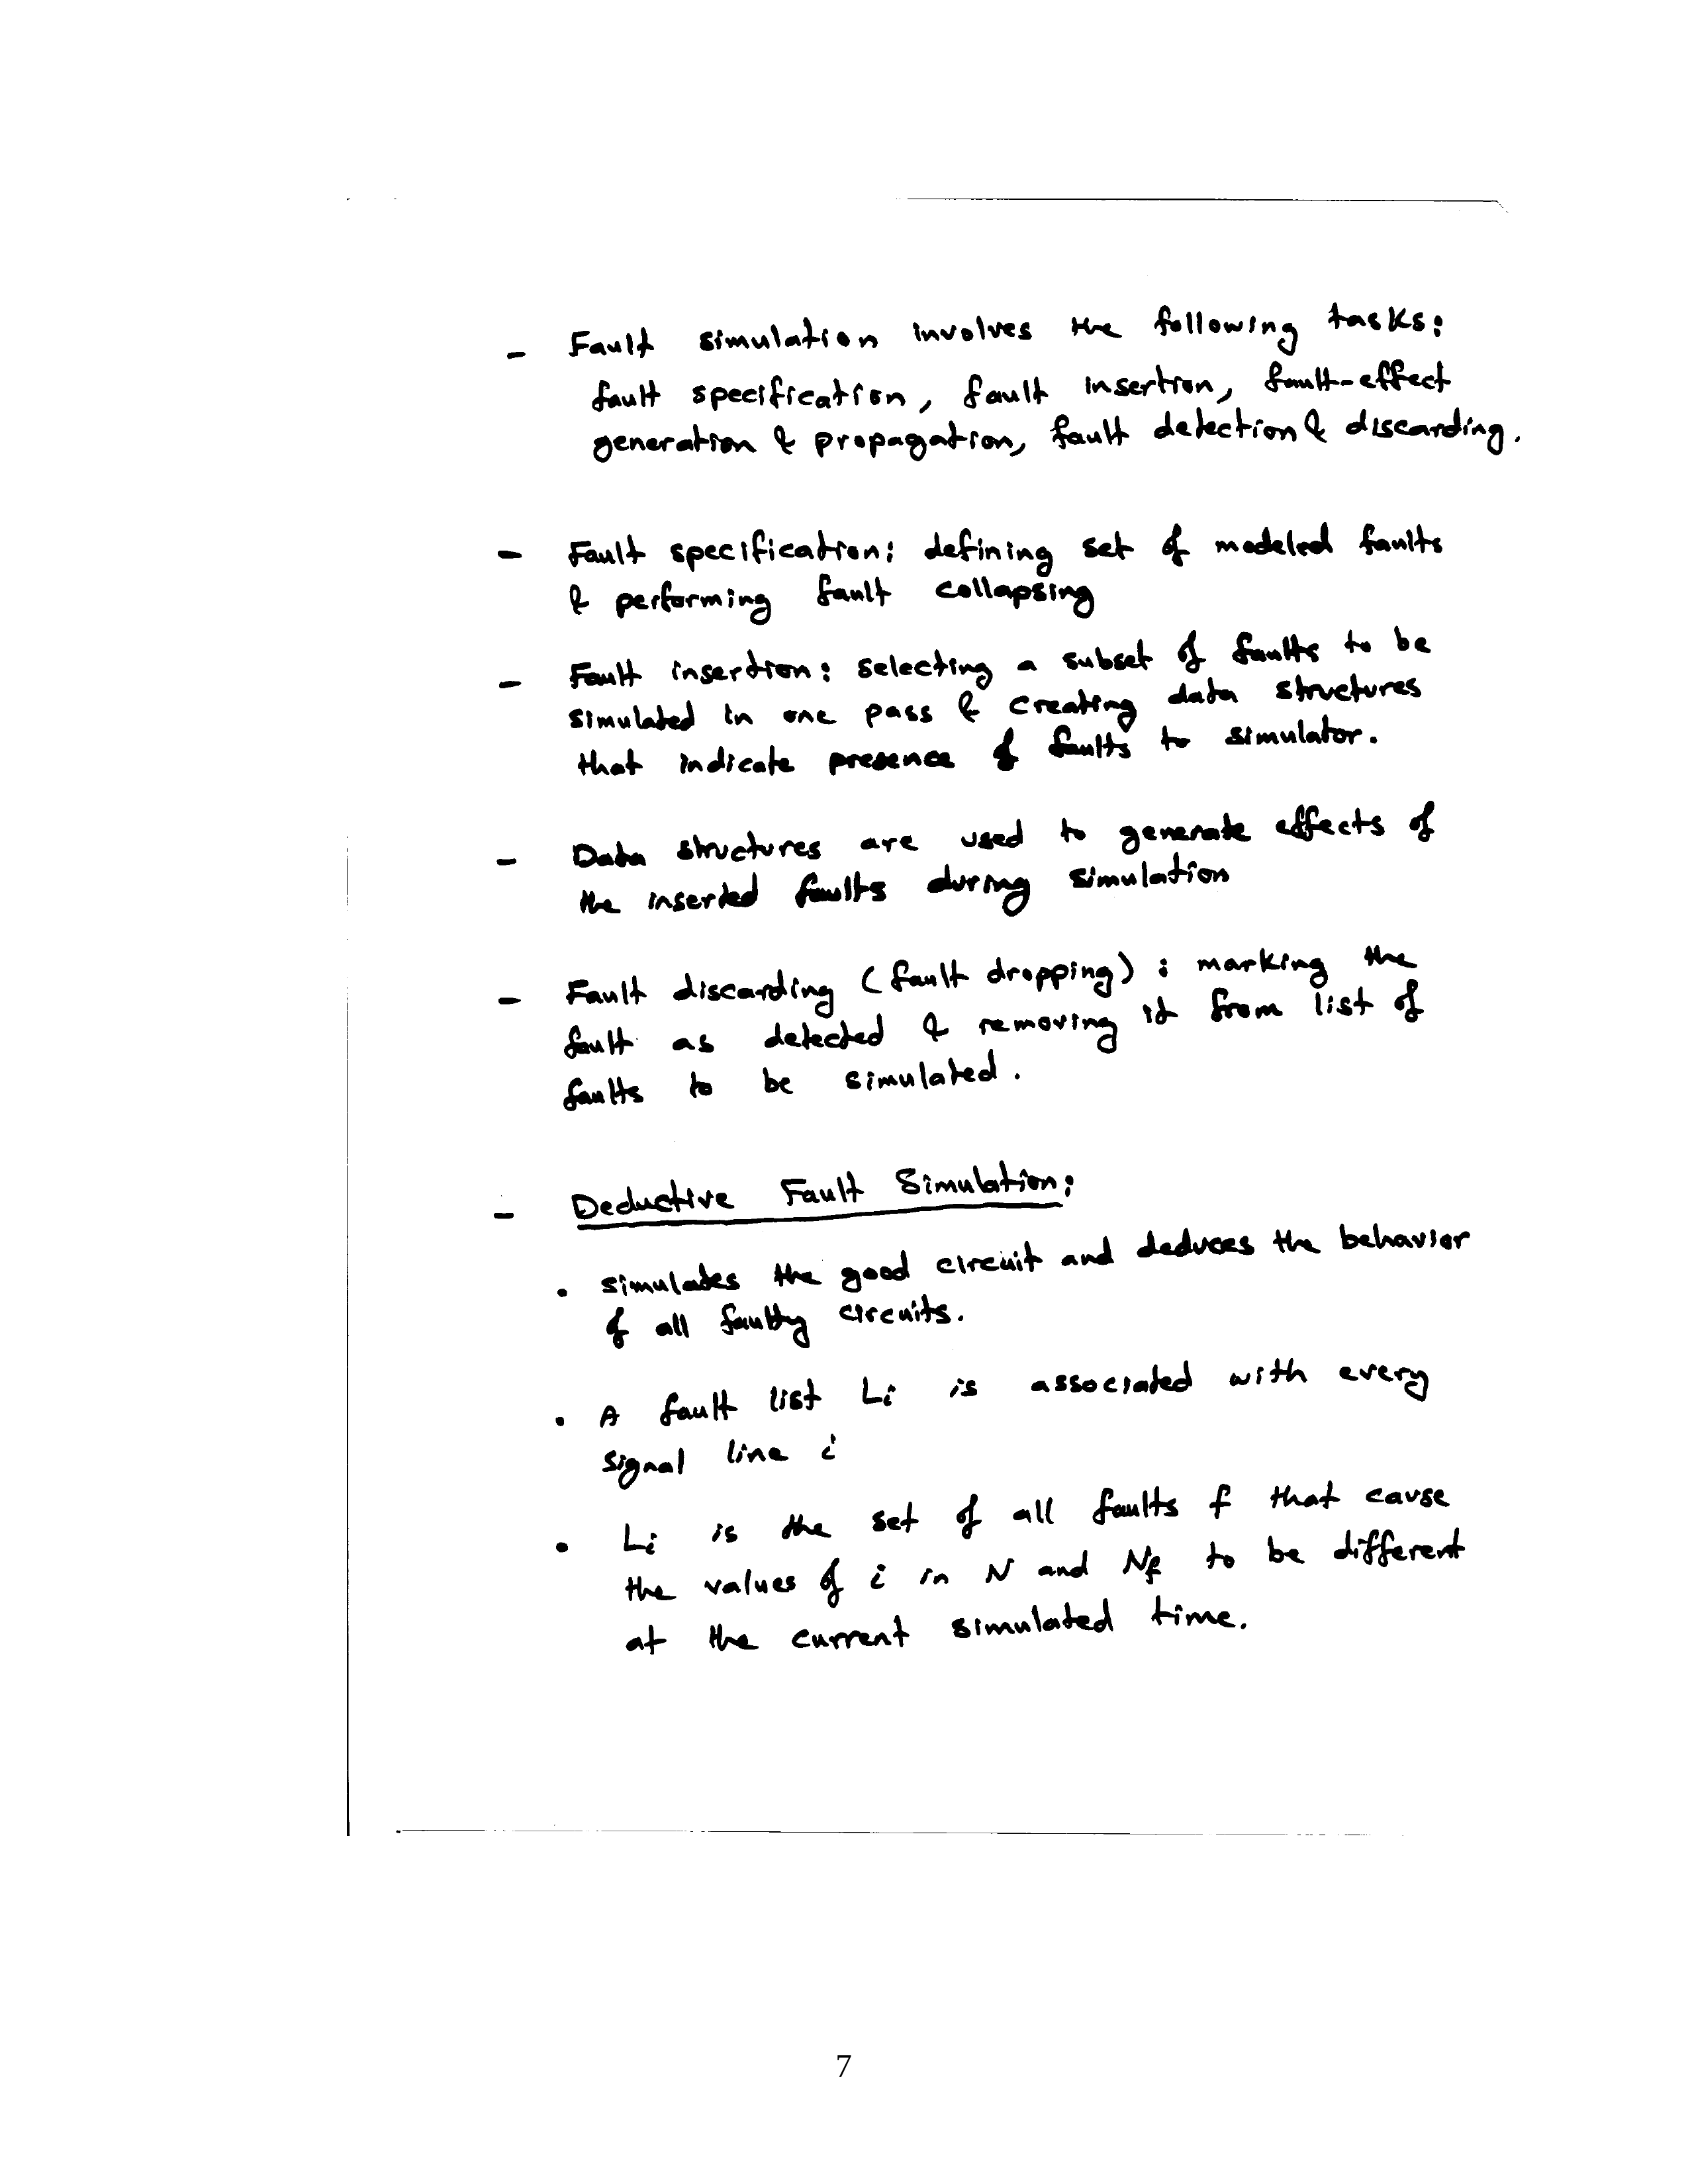 - Fault simulation involves the following tasks:
fault specification, fault insertion, fault-effect
generation & propagation, fault detection & discarding.
- Fault specification: defining set of modeled faults
& performing fault collapsing
- Fault insertion: selecting a subset of faults to be
simulated in one pass & creating data structures
that indicate presence of faults to simulator.
- Data structures are used to generate effects of
the inserted faults during simulation
- Fault discarding (fault dropping): marking the
fault as detected & removing it from list of
faults to be simulated.
- Deductive Fault Simulation:
• simulates the good circuit and deduces the behavior
of all faulty circuits.
• A fault list Li is associated with every
signal line i
• Li is the set of all faults f that cause
the values of i in N and Nf to be different
at the current simulated time.
7